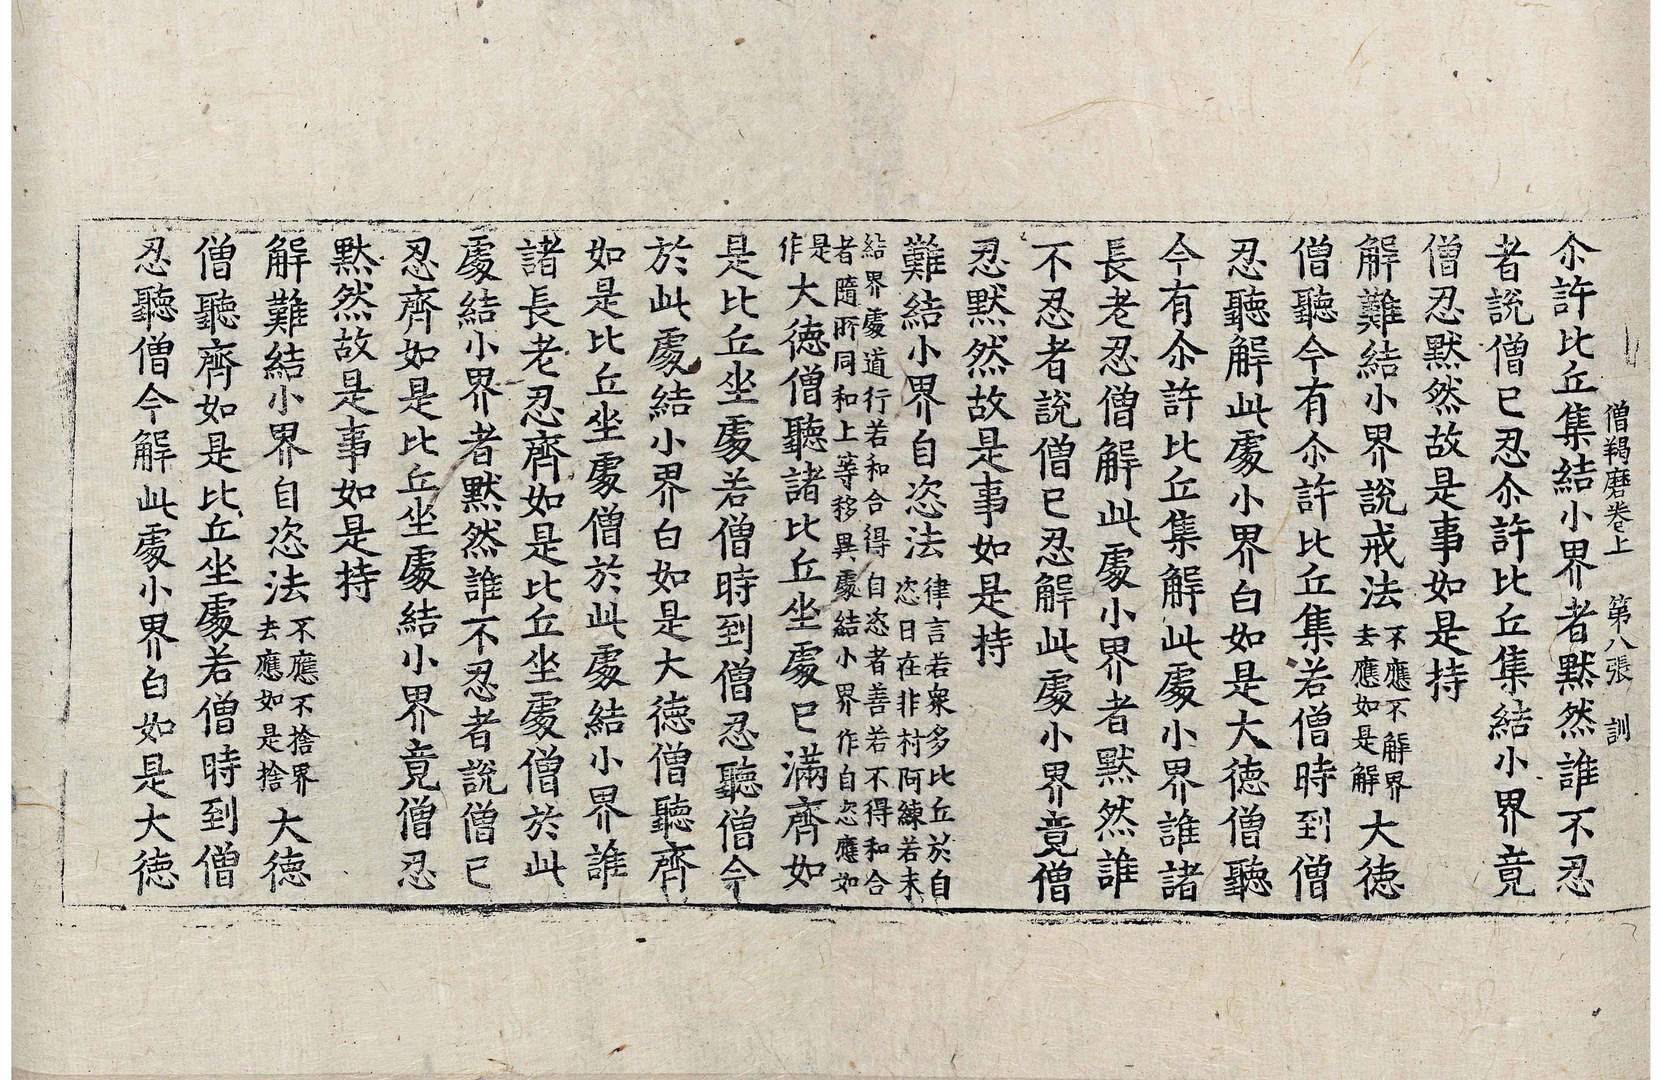 僧羯磨卷上 第八張 訓
尒許比丘集結小界者默然誰不忍
者說僧已忍尒許比丘集結小界竟
僧忍默然故是事如是持
解難結小界說戒法不應不解界去應如是解大德
僧聽今有尒許比丘集若僧時到僧
忍聽解此處小界白如是大德僧聽
今有尒許比丘集解此處小界誰諸
長老忍僧解此處小界者默然誰
不忍者說僧已忍解此處小界竟僧
忍默然故是事如是持
難結小界自恣法律言若衆多比丘於自恣日在非村阿練若未
結界處道行若和合得自恣者善若不得和合者隨所同和上等移異處結小界作自恣應如
是作大德僧聽諸比丘坐處已滿齊如
是比丘坐處若僧時到僧忍聽僧今
於此處結小界白如是大德僧聽齊
如是比丘坐處僧於此處結小界誰
諸長老忍齊如是比丘坐處僧於此
處結小界者默然誰不忍者說僧已
忍齊如是比丘坐處結小界竟僧忍
默然故是事如是持
解難結小界自恣法不應不捨界去應如是捨大德
僧聽齊如是比丘坐處若僧時到僧
忍聽僧今解此處小界白如是大德